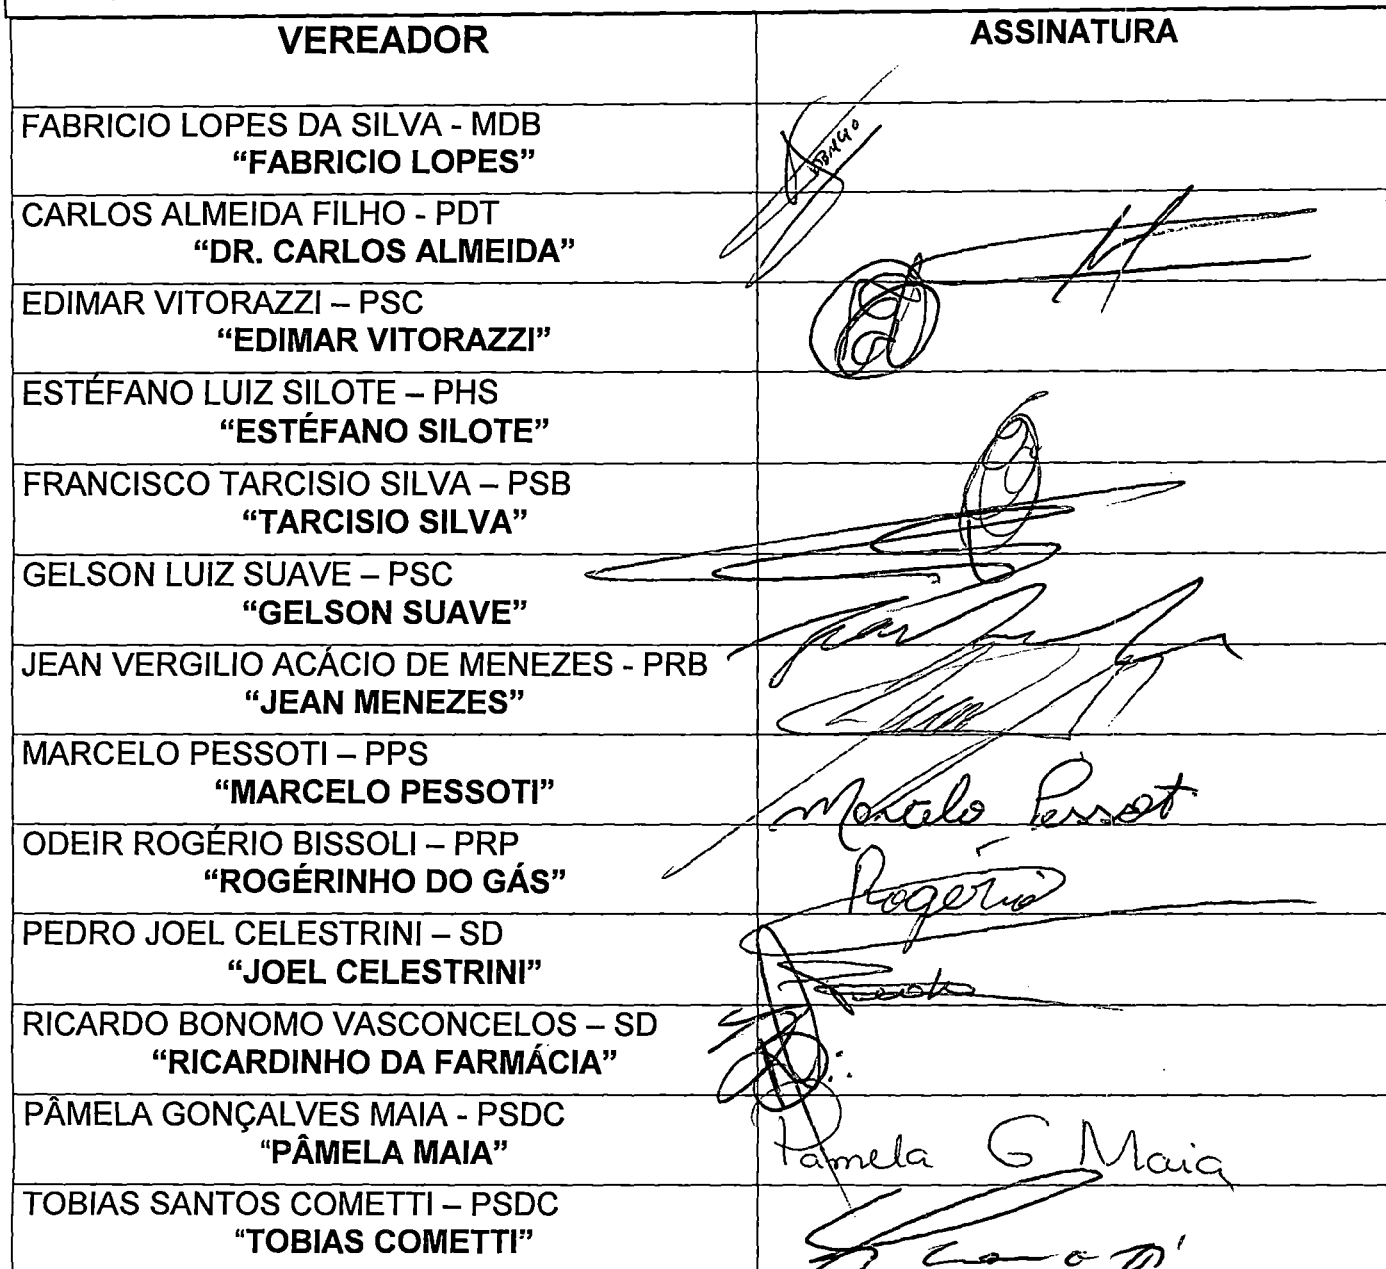 VEREADOR
ASSINATURA
FABRICIO LOPES DA SILVA - MDB
“FABRICIO LOPES”
CARLOS ALMEIDA FILHO - PDT
“DR. CARLOS ALMEIDA”
EDIMAR VITORAZZI – PSC
“EDIMAR VITORAZZI”
ESTÉFANO LUIZ SILOTE – PHS
“ESTÉFANO SILOTE”
FRANCISCO TARCISIO SILVA – PSB
“TARCISIO SILVA”
GELSON LUIZ SUAVE – PSC
“GELSON SUAVE”
JEAN VERGILIO ACÁCIO DE MENEZES - PRB
“JEAN MENEZES”
MARCELO PESSOTI – PPS
“MARCELO PESSOTI”
Marcelo Pessot
ODEIR ROGÉRIO BISSOLI – PRP
“ROGÉRINHO DO GÁS”
Rogério
PEDRO JOEL CELESTRINI – SD
“JOEL CELESTRINI”
RICARDO BONOMO VASCONCELOS – SD
“RICARDINHO DA FARMÁCIA”
PÂMELA GONÇALVES MAIA - PSDC
“PÂMELA MAIA”
Pamela G Maia
TOBIAS SANTOS COMETTI – PSDC
“TOBIAS COMETTI”